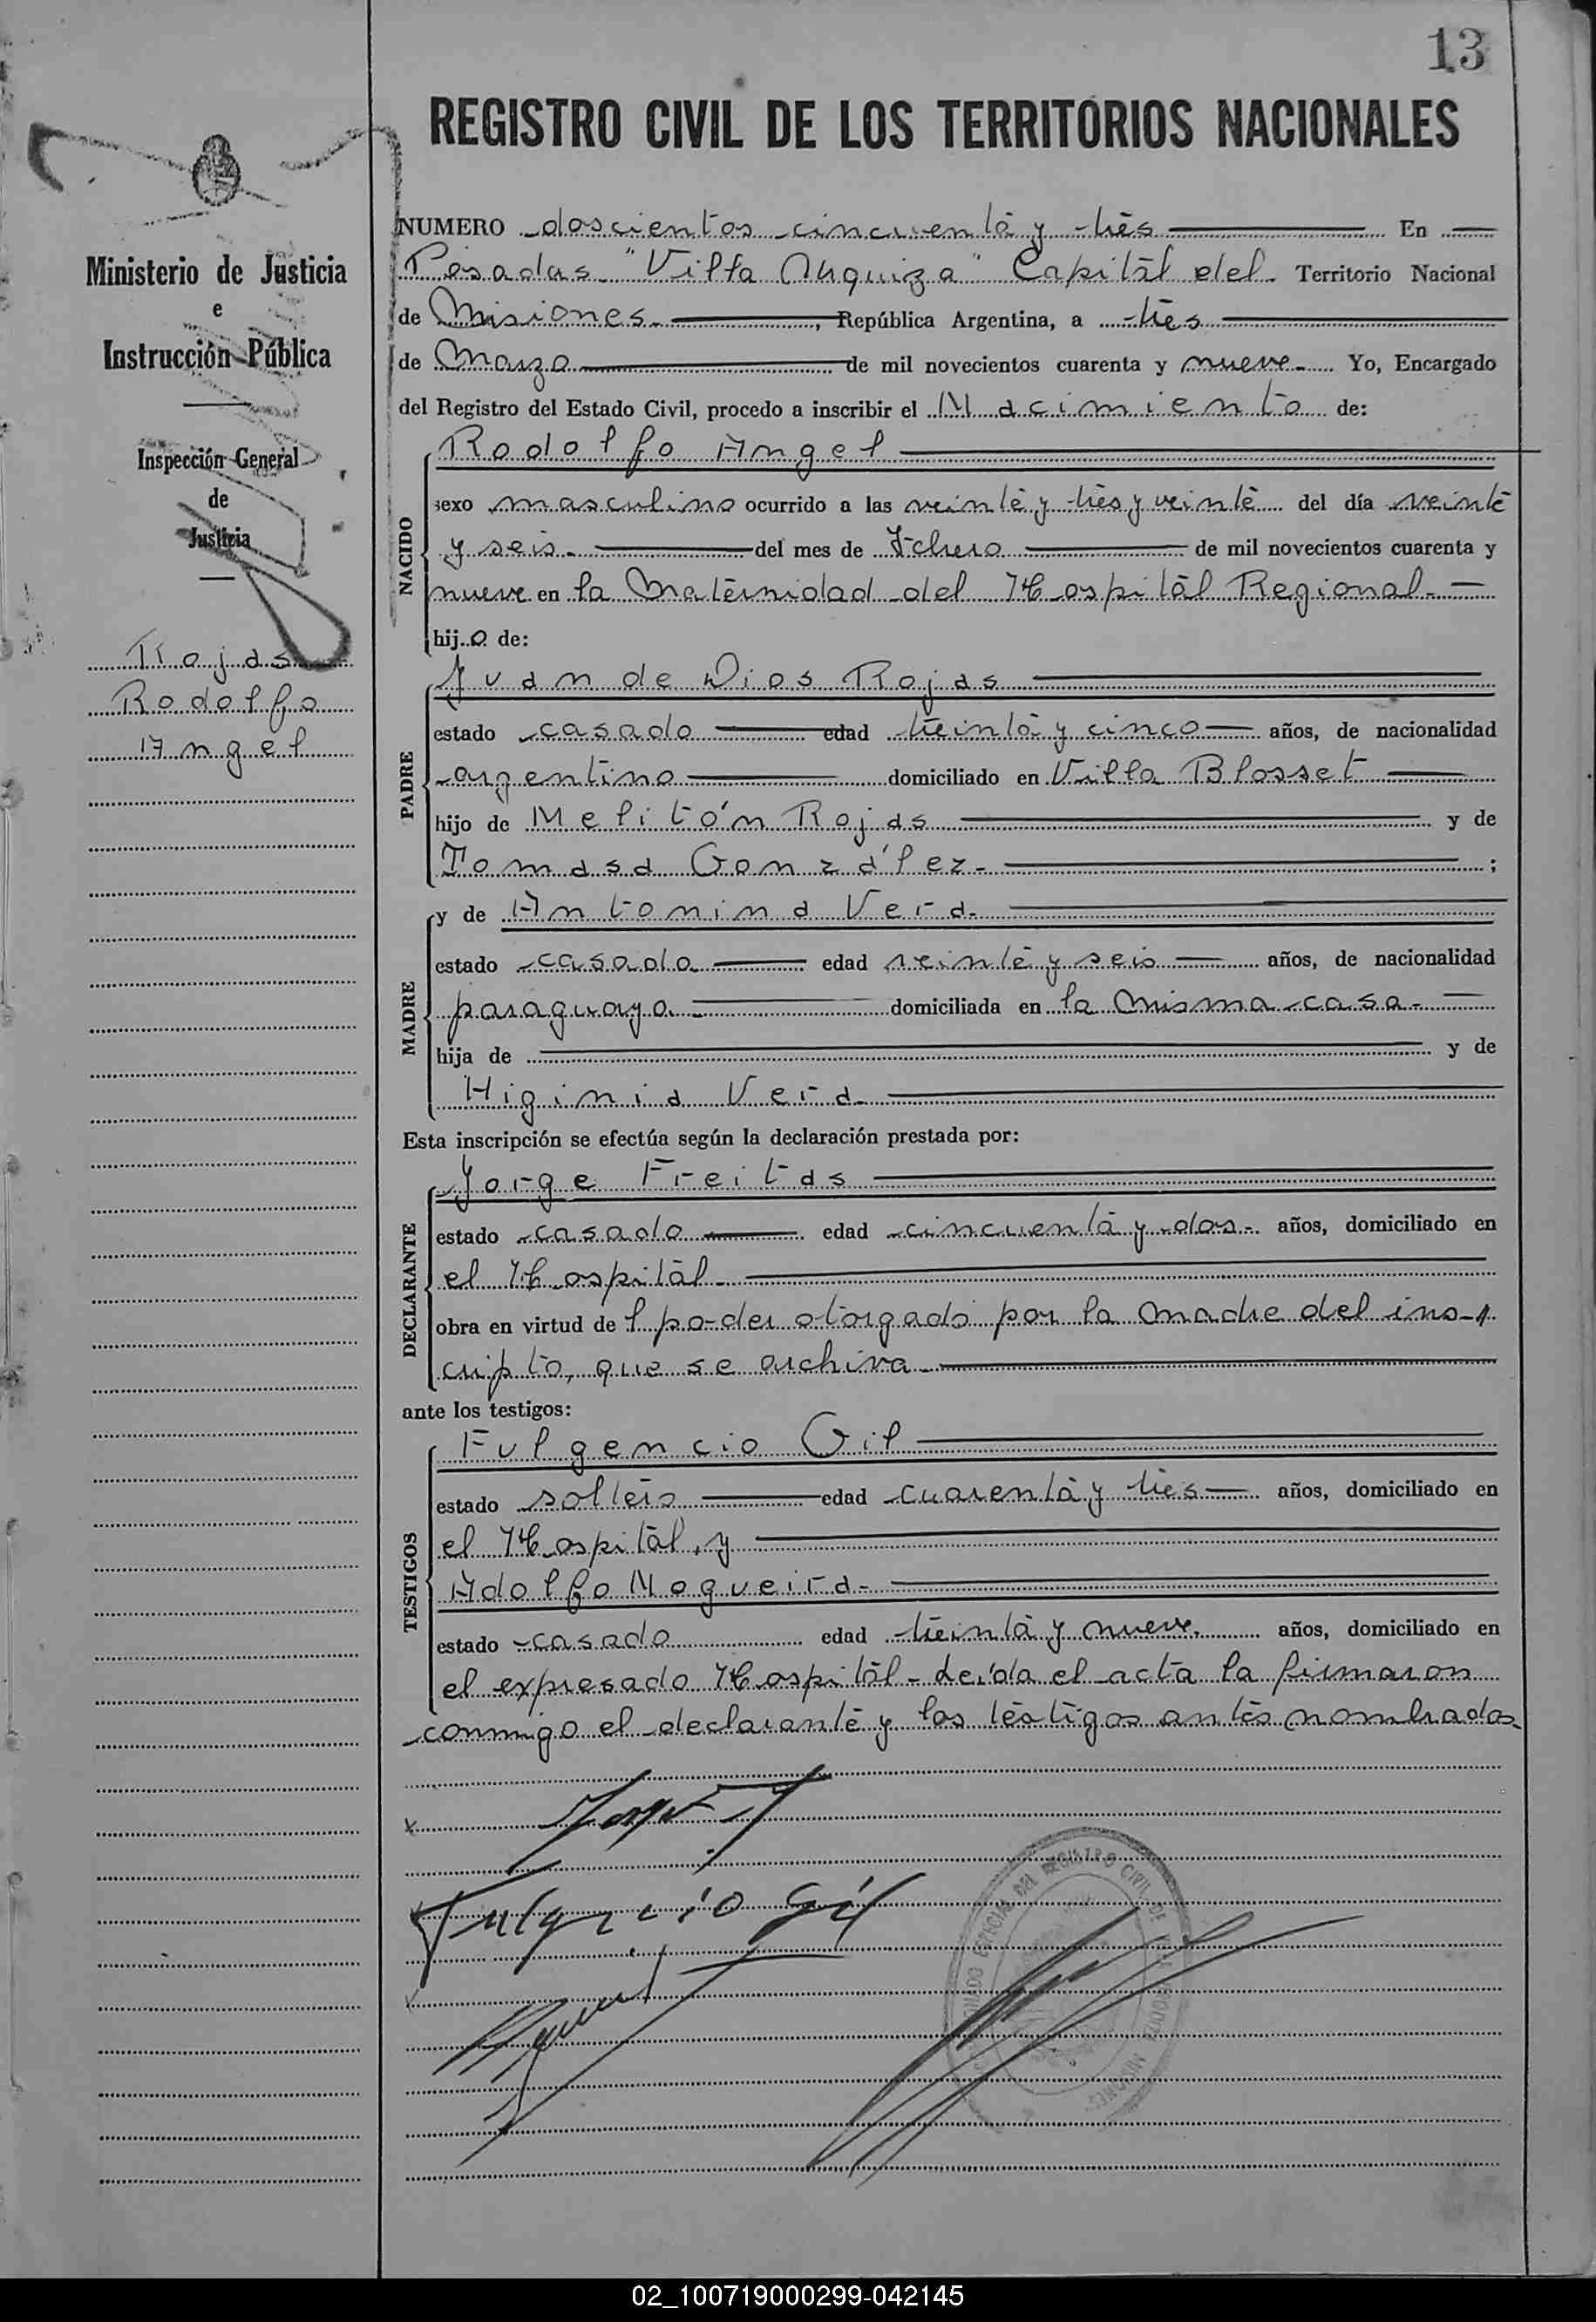 13
REGISTRO CIVIL DE LOS TERRITORIOS NACIONALES
Ministerio de Justicia
e
Instrucción Pública
Inspección General
de
Justicia
Rojas
Rodolfo
Angel
NUMERO doscientos cincuenta y tres En
Posadas "Villa Urquiza" Capital del Territorio Nacional
de Misiones. , República Argentina, a tres
de Marzo de mil novecientos cuarenta y nueve. Yo, Encargado
del Registro del Estado Civil, procedo a inscribir el Nacimiento de:
Rodolfo Angel
NACIDO
sexo masculino ocurrido a las veinte y tres y veinte del día veinte
y seis. del mes de Febrero de mil novecientos cuarenta y
nueve en la Maternidad del Hospital Regional.
hijo de:
Juan de Dios Rojas
PADRE
estado casado edad treinta y cinco años, de nacionalidad
argentino domiciliado en Villa Blosset
hijo de Melitón Rojas y de
Tomasa González. ;
y de Antonina Vera.
MADRE
estado casada edad veinte y seis años, de nacionalidad
paraguaya. domiciliada en la misma casa.
hija de y de
Higinia Vera.
Esta inscripción se efectúa según la declaración prestada por:
Jorge Freitas
DECLARANTE
estado casado edad cincuenta y dos. años, domiciliado en
el Hospital.
obra en virtud del poder otorgado por la madre del ins-
cripto, que se archiva.
ante los testigos:
Fulgencio Gil
TESTIGOS
estado soltero edad cuarenta y tres años, domiciliado en
el Hospital, y
Adolfo Nogueira.
estado casado edad treinta y nueve. años, domiciliado en
el expresado Hospital. Leída el acta la firmaron
conmigo el declarante y los testigos antes nombrados.
Fulgencio Gil
DEL REGISTRO CIVIL DE
MISIONES
02_100719000299-042145